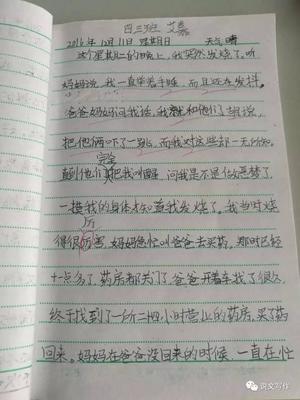 四三班 艾嘉
2016年12月11日 星期日 天气晴
这个星期二的晚上,我突然发烧了。听
妈妈说,我一直举着手睡,而且还在发抖。
爸爸妈妈问我话,我就和他们胡说,
把他俩吓了一跳,而我对这些却一无所知。
完全
他们把我叫醒 问我是不是做恶梦了
一摸我的身体才知道我发烧了。我当时烧
得很厉害,妈妈急忙叫爸爸去买药。那时已经
十一点多了,药房都关门了,爸爸开着车找了很久,
终于找到了一所二十四小时营业的药房,买了药
回来。妈妈在爸爸没回来的时候,一直在忙
语文写作